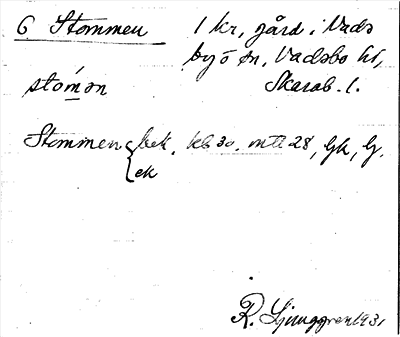 6 Stommen 1 kr, gård i Vads
by ö sn, Vadsbo hd,
stómən Skarab. l.
Stommen { bek. kb 30. mtl 28, Gk, G.
ek
R. Ljunggren 1931